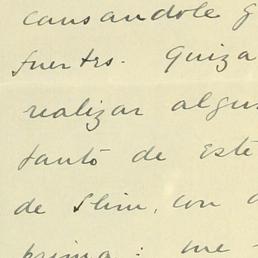 causandole g
fuertes. Quiza
realizar algu
tanto de este
de Slim, con
prima: me